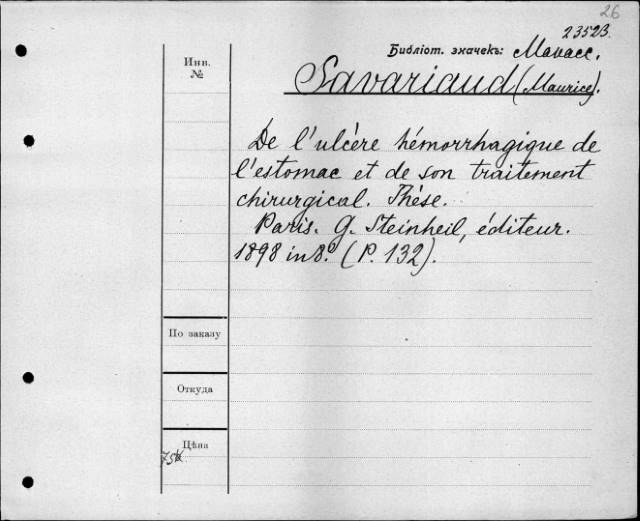 26
23523.
Библіот. значекъ: Манасс.
Инв.
№
Savariaud (Maurice).
De l'ulcère hémorrhagique de
l'estomac et de son traitement
chirurgical. Thèse.
Paris. G. Steinheil, éditeur.
1898 in 8.° (P. 132).
По заказу
Откуда
Цѣна
75к